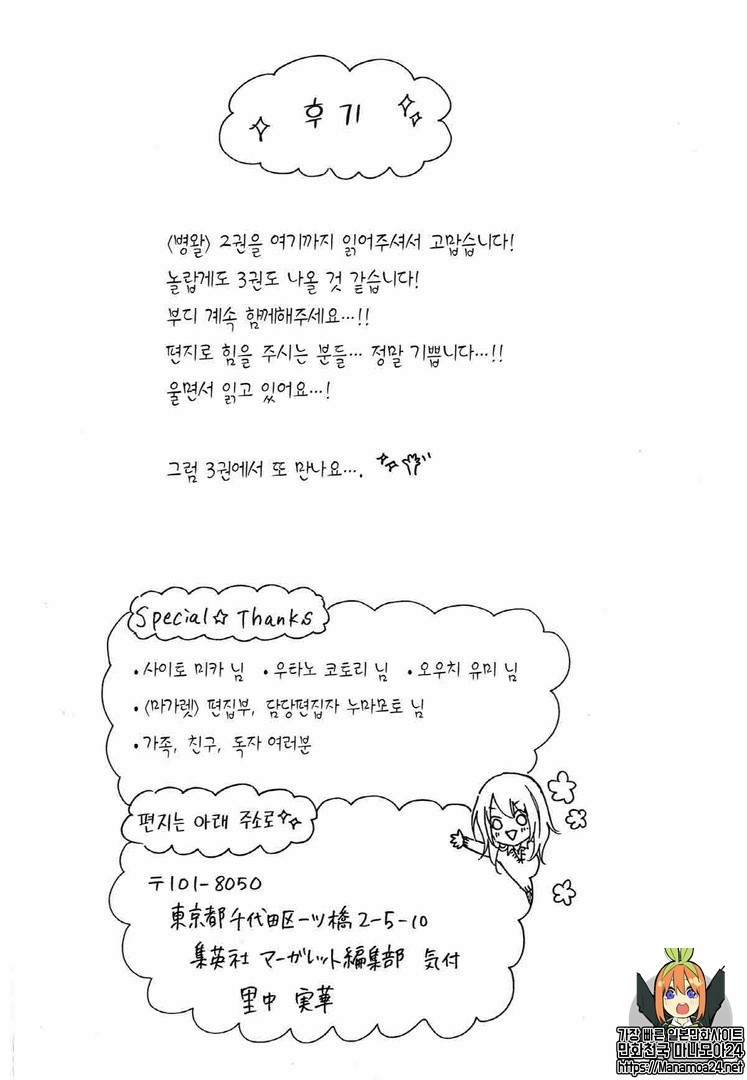 후기
<병왈> 2권을 여기까지 읽어주셔서 고맙습니다!
놀랍게도 3권도 나올 것 같습니다!
부디 계속 함께해주세요…!!
편지로 힘을 주시는 분들… 정말 기쁩니다…!!
울면서 읽고 있어요…!
그럼 3권에서 또 만나요….
Special☆Thanks
•사이토 미카 님 •우타노 코토리 님 •오우치 유미 님
•<마가렛> 편집부, 담당편집자 누마모토 님
•가족, 친구, 독자 여러분
편지는 아래 주소로
〒101-8050
東京都千代田区一ツ橋2-5-10
集英社 マーガレット編集部 気付
里中 実華
가장 빠른 일본만화사이트
만화천국 마나모아24
https://Manamoa24.net